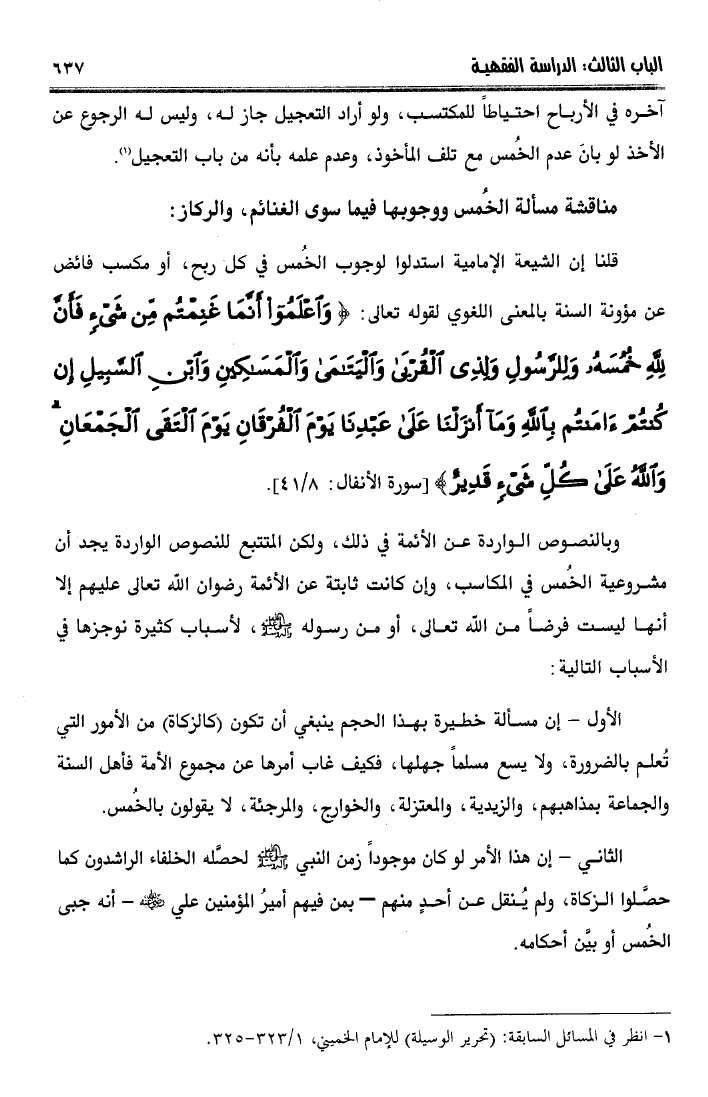 الباب الثالث: الدراسة الفقهية ٦٣٧
آخره في الأرباح احتياطاً للمكتسب، ولو أراد التعجيل جاز له، وليس له الرجوع عن
الأخذ لو بانَ عدم الخُمس مع تلف المأخوذ، وعدم علمه بأنه من باب التعجيل(١).
مناقشة مسألة الخُمس ووجوبها فيما سوى الغنائم، والركاز:
قلنا إن الشيعة الإمامية استدلوا لوجوب الخُمس في كل ربح، أو مكسب فائض
عن مؤونة السنة بالمعنى اللغوي لقوله تعالى: ﴿ وَٱعْلَمُوٓا۟ أَنَّمَا غَنِمْتُم مِّن شَىْءٍ فَأَنَّ
لِلَّهِ خُمُسَهُۥ وَلِلرَّسُولِ وَلِذِى ٱلْقُرْبَىٰ وَٱلْيَتَٰمَىٰ وَٱلْمَسَٰكِينِ وَٱبْنِ ٱلسَّبِيلِ إِن
كُنتُمْ ءَامَنتُم بِٱللَّهِ وَمَآ أَنزَلْنَا عَلَىٰ عَبْدِنَا يَوْمَ ٱلْفُرْقَانِ يَوْمَ ٱلْتَقَى ٱلْجَمْعَانِ ۗ
وَٱللَّهُ عَلَىٰ كُلِّ شَىْءٍ قَدِيرٌ﴾ [سورة الأنفال: ٤١/٨].
وبالنصوص الواردة عن الأئمة في ذلك، ولكن المتتبع للنصوص الواردة يجد أن
مشروعية الخُمس في المكاسب، وإن كانت ثابتة عن الأئمة رضوان الله تعالى عليهم إلا
أنها ليست فرضاً من الله تعالى، أو من رسوله ﷺ، لأسباب كثيرة نوجزها في
الأسباب التالية:
الأول – إن مسألة خطيرة بهذا الحجم ينبغي أن تكون (كالزكاة) من الأمور التي
تُعلم بالضرورة، ولا يسع مسلماً جهلها، فكيف غاب أمرها عن مجموع الأمة فأهل السنة
والجماعة بمذاهبهم، والزيدية، والمعتزلة، والخوارج، والمرجئة، لا يقولون بالخُمس.
الثاني – إن هذا الأمر لو كان موجوداً زمن النبي ﷺ لحصَّله الخلفاء الراشدون كما
حصَّلوا الزكاة، ولم يُنقل عن أحدٍ منهم – بمن فيهم أميرُ المؤمنين علي رضي الله عنه – أنه جبى
الخُمس أو بيَّن أحكامه.
١– انظر في المسائل السابقة: (تحرير الوسيلة) للإمام الخميني، ٣٢٣/١–٣٢٥.